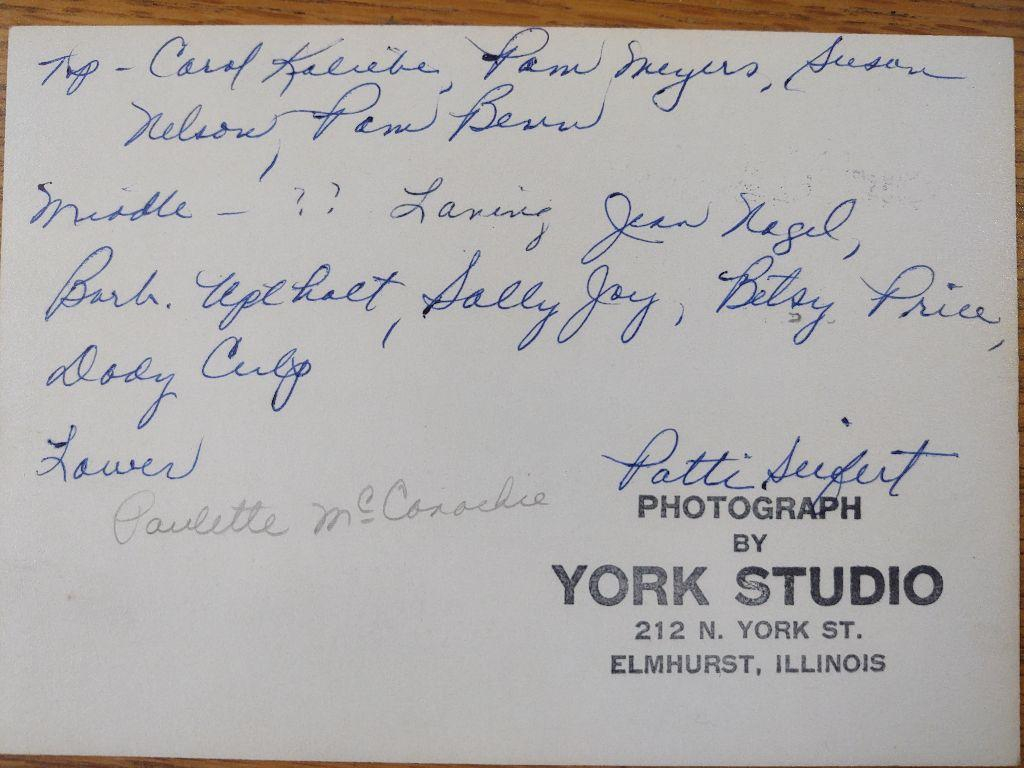 Top - Carol Kaliebe, Pam Meyers, Susan
Nelson, Pam Benn
Middle - ?? Laning Jean Nagel,
Barb. Uptholt, Sally Joy, Betsy Price,
Dody Culp
Lower Patti Seifert
Paulette McConochie
PHOTOGRAPH
BY
YORK STUDIO
212 N. YORK ST.
ELMHURST, ILLINOIS